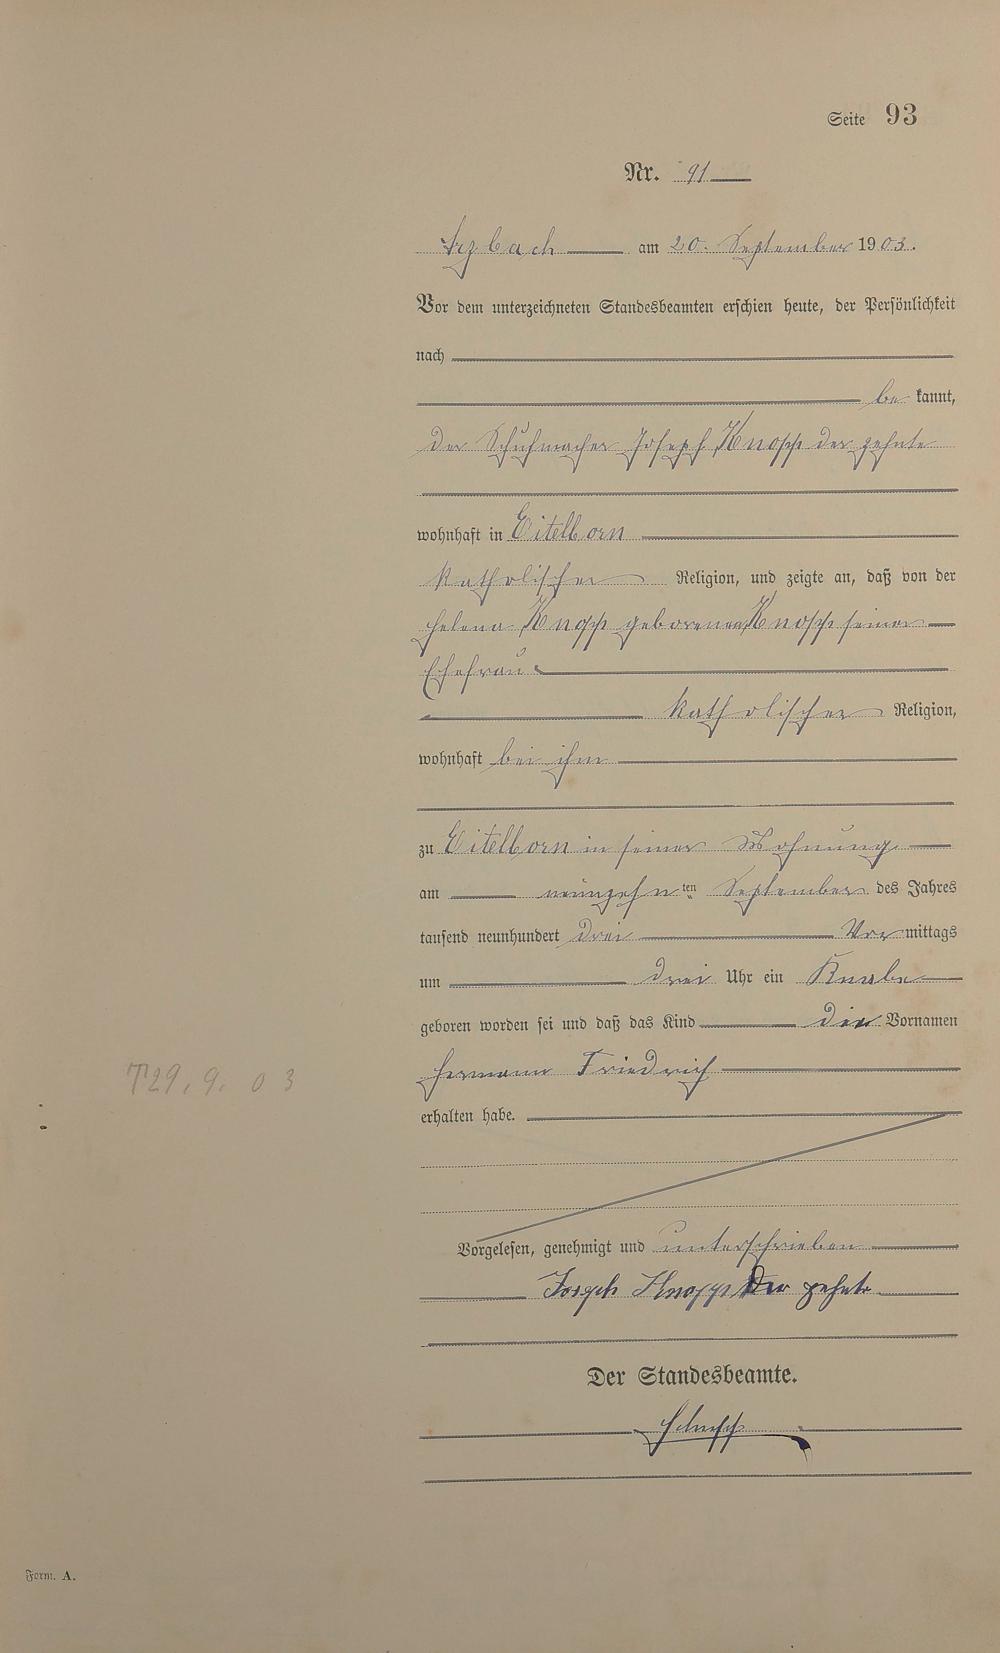 Seite 93
Nr. 91
Arzbach am 20. September 1903.
Vor dem unterzeichneten Standesbeamten erschien heute, der Persönlichkeit
nach
be kannt,
der Schuhmacher Joseph Knopp der zehnte
wohnhaft in Eitelborn
katholischer Religion, und zeigte an, daß von der
Helena Knopp geborenen Knopp seiner
Ehefrau
katholischer Religion,
wohnhaft bei ihm
zu Eitelborn in seiner Wohnung
am neunzehn ten September des Jahres
tausend neunhundert drei Vor mittags
um drei Uhr ein Knabe
geboren worden sei und daß das Kind die Vornamen
Hermann Friedrich
T29. 9. 03
erhalten habe.
Vorgelesen, genehmigt und unterschrieben
Joseph Knopp der zehnte
Der Standesbeamte.
Form. A.